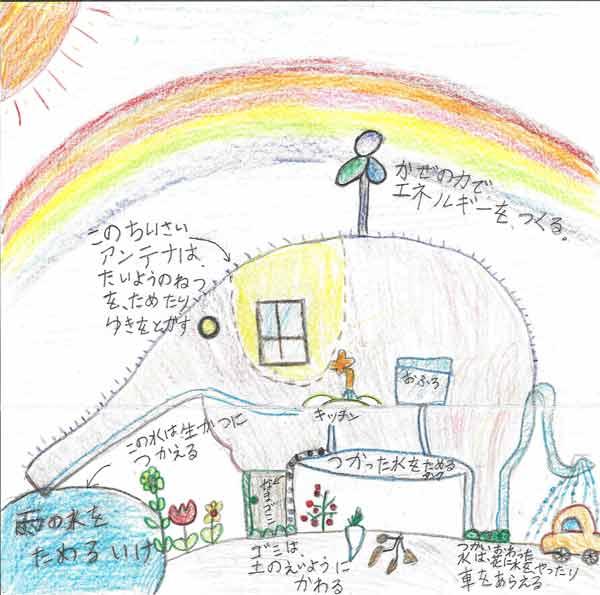 かぜの力で
エネルギーを、つくる。
このちいさい
アンテナは、
たいようのねつ
を、ためたり、
ゆきをとかす
おふろ
キッチン
この水は生かつに
つかえる
つかった水をためる
なまゴミ
雨の水を
ためるいけ
ゴミは、
土のえいように
かわる
つかいおわった
水は、花に水をやったり
車をあらえる